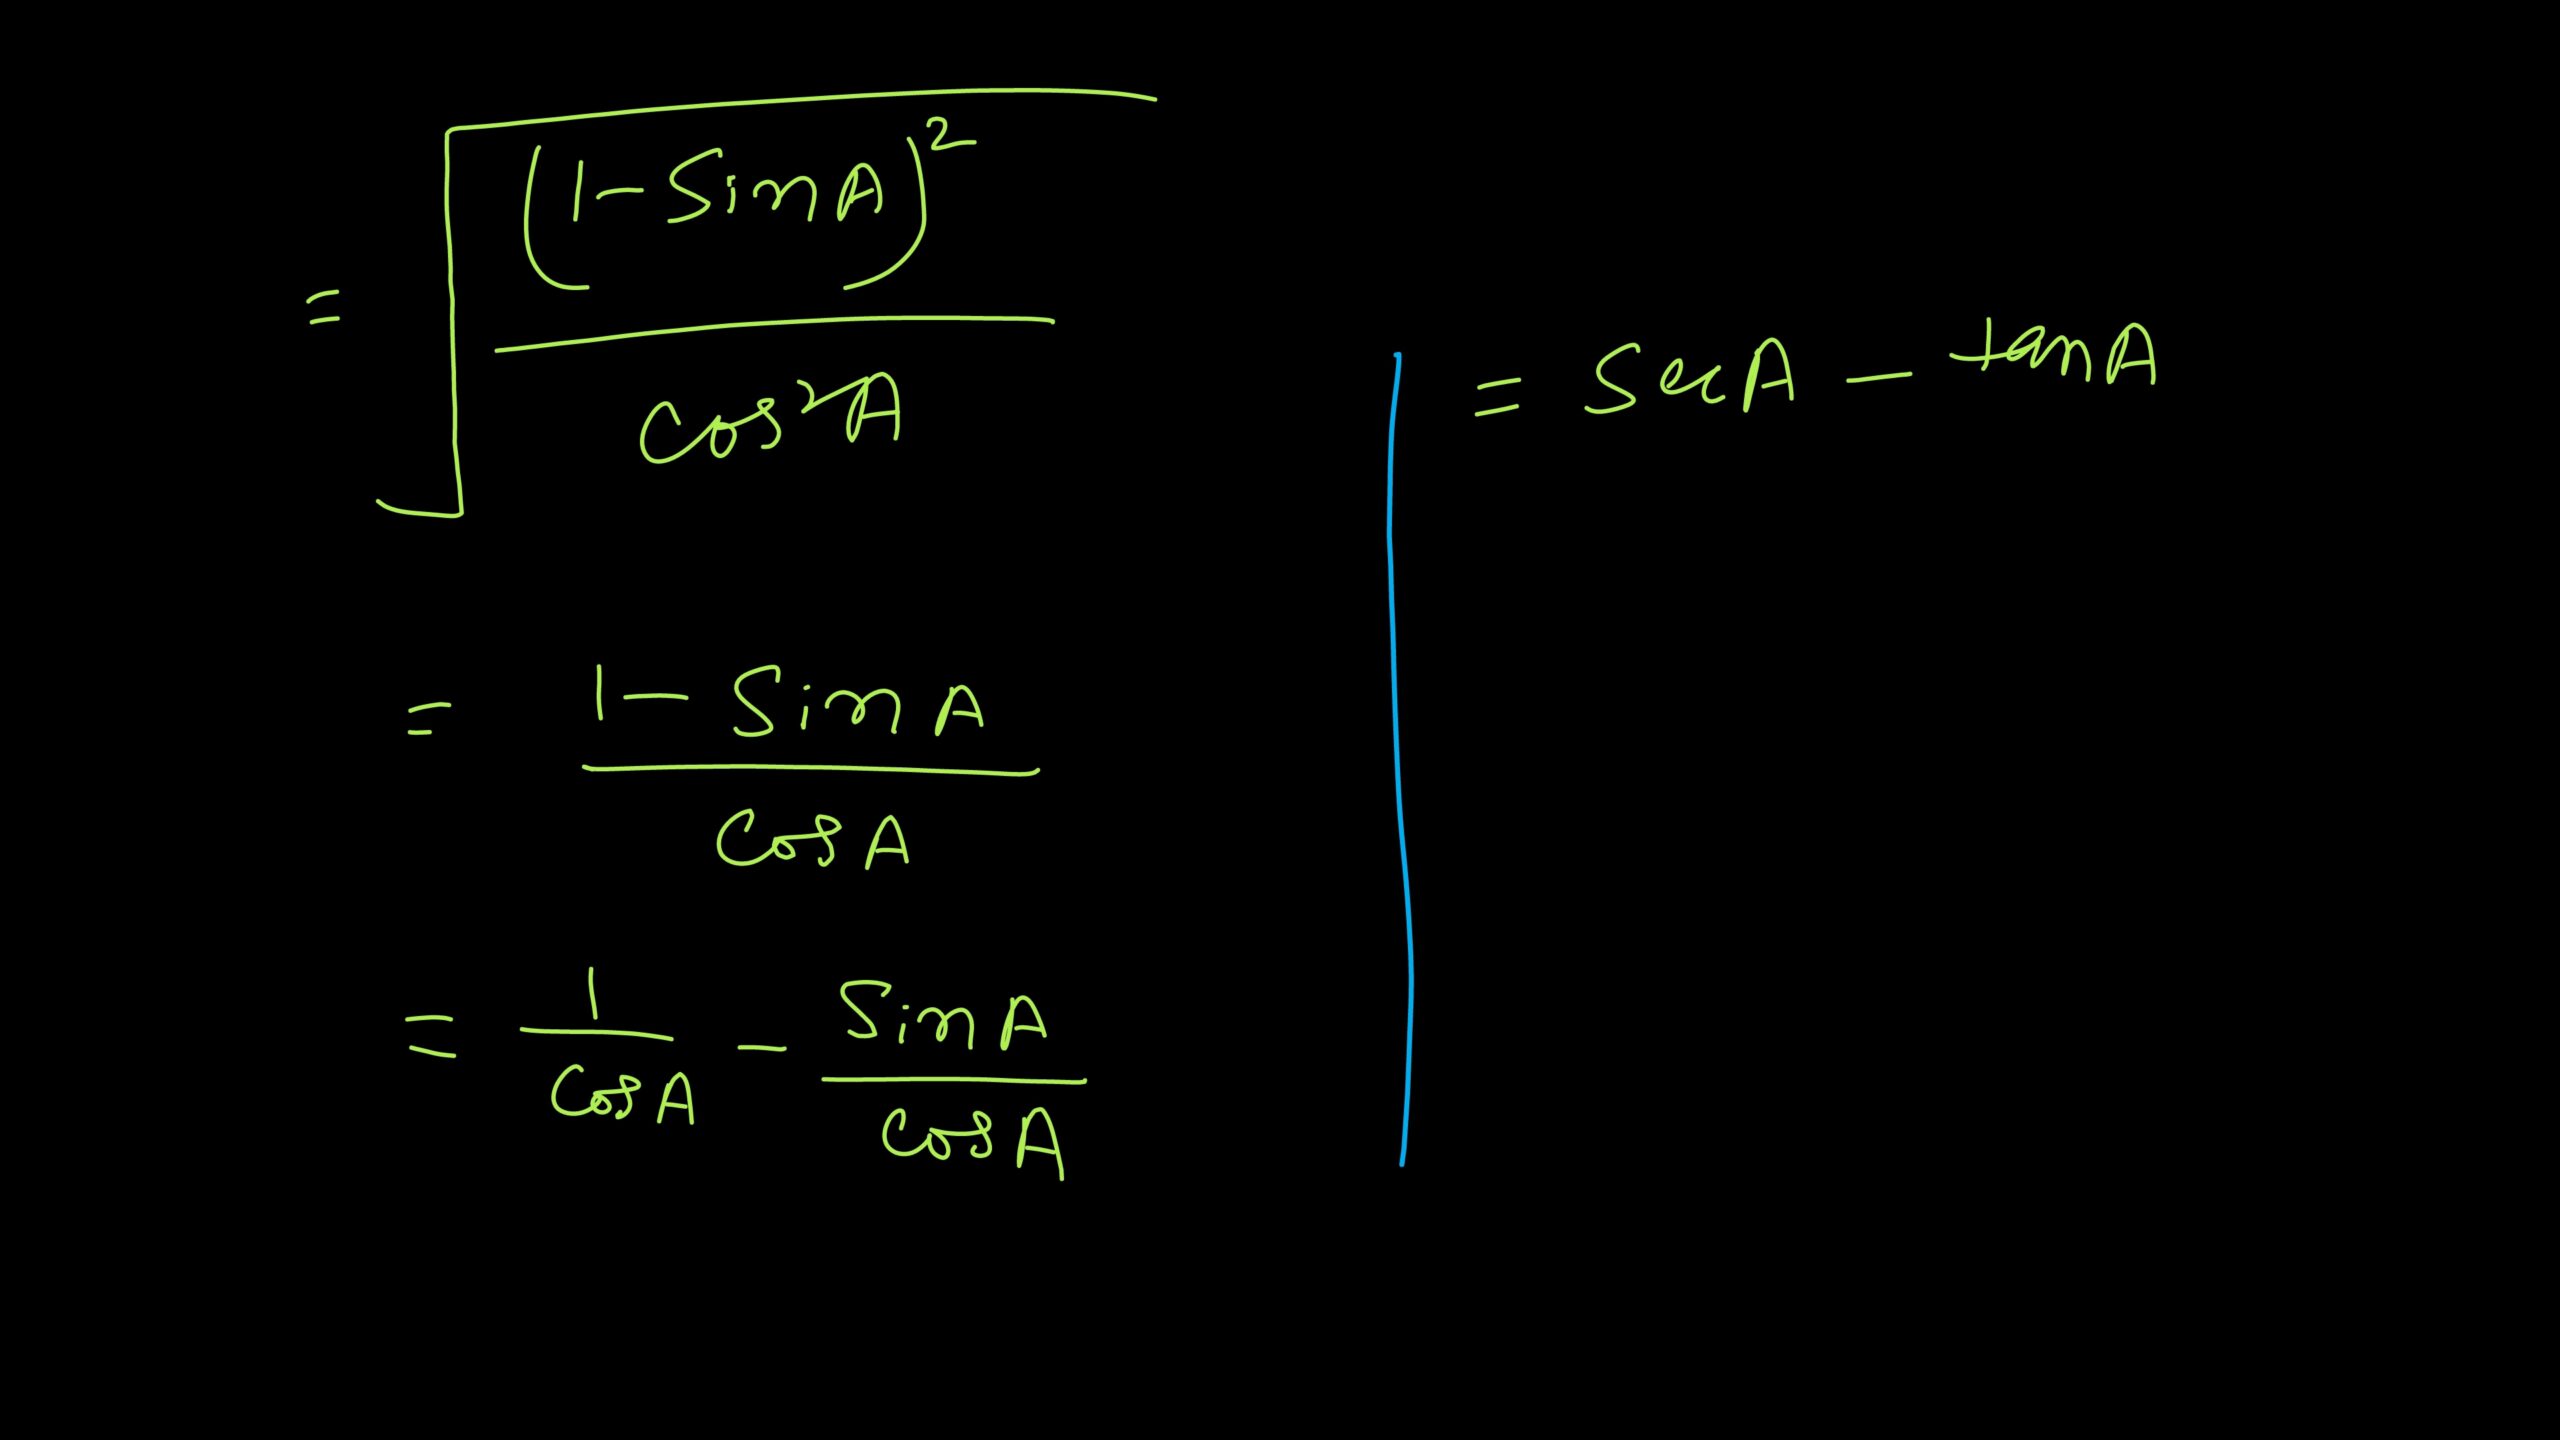 = √((1 - Sin A)² / Cos²A)
= (1 - Sin A) / Cos A
= 1 / Cos A - Sin A / Cos A
= Sec A - tan A